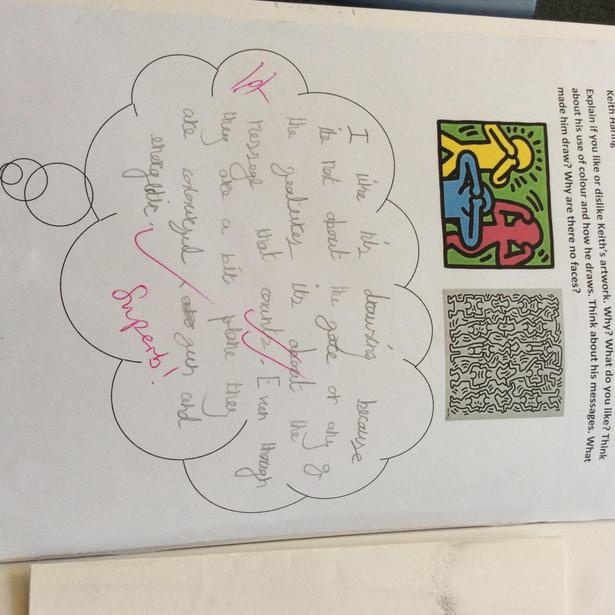 Keith Haring
Explain if you like or dislike Keith's artwork. Why? What do you like? Think
about his use of colour and how he draws. Think about his messages. What
made him draw? Why are there no faces?
I like his drawing because
its not about the face or any of
the features its about the
message that counts. Even though
they are a bit plane they
are colourful, fun and
energetic.
Superb!